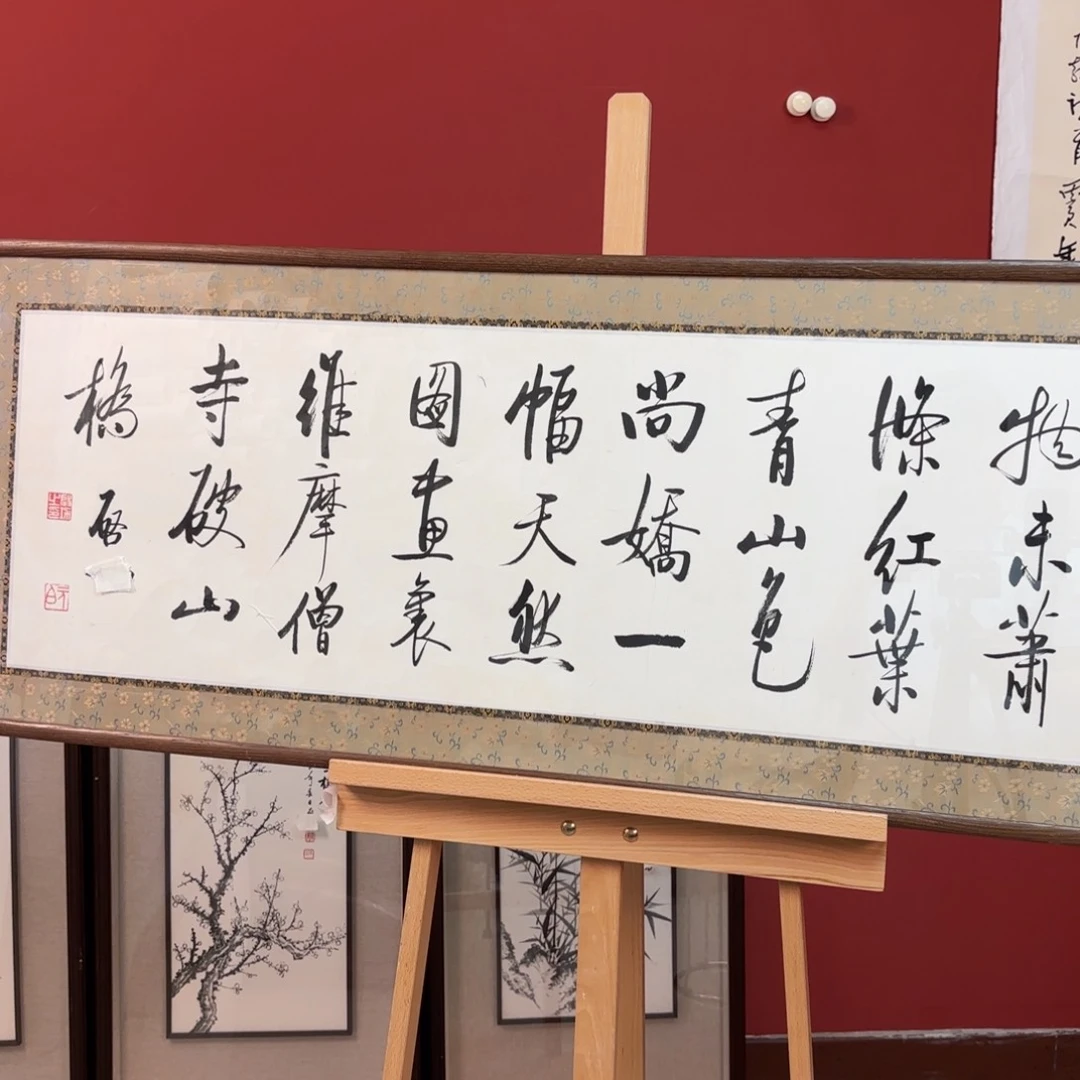 物未蕭
條紅葉
青山色
尚嬌一
幅天然
圖畫裏
維摩僧
寺破山
橋 启